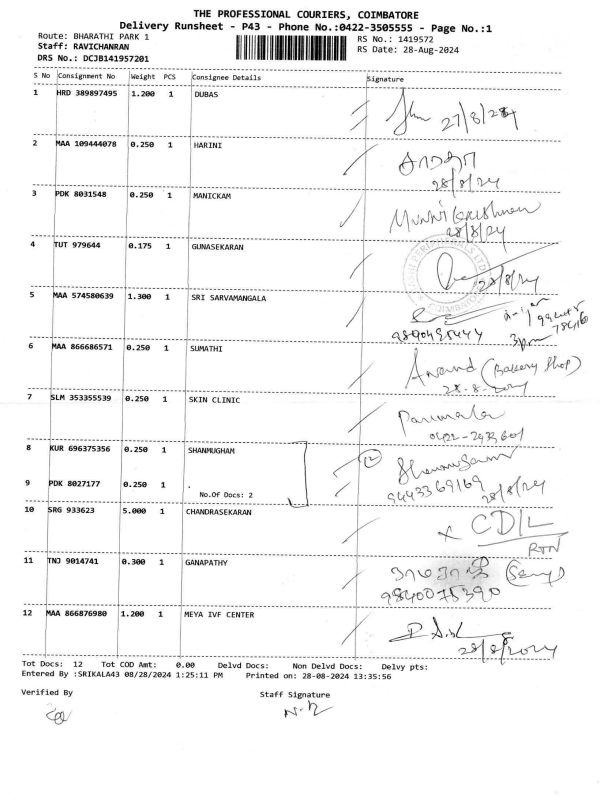 THE PROFESSIONAL COURIERS, COIMBATORE
Delivery Runsheet - P43 - Phone No.:0422-3505555 - Page No.:1
Route: BHARATHI PARK 1
RS No.: 1419572
Staff: RAVICHANRAN
RS Date: 28-Aug-2024
DRS No.: DCJB141957201
S No Consignment No Weight PCS Consignee Details Signature
1 HRD 389897495 1.200 1 DUBAS
27/8/24
2 MAA 109444078 0.250 1 HARINI
28/8/24
3 PDK 8031548 0.250 1 MANICKAM
28/8/24
4 TUT 979644 0.175 1 GUNASEKARAN
28/8/24
5 MAA 574580639 1.300 1 SRI SARVAMANGALA
3pm
6 MAA 866686571 0.250 1 SUMATHI
Anand (Bakery Shop)
28-8-2024
7 SLM 353355539 0.250 1 SKIN CLINIC
8 KUR 696375356 0.250 1 SHANMUGHAM
12
9 PDK 8027177 0.250 1 .
9443369169 28/8/24
No.Of Docs: 2
10 SRG 933623 5.000 1 CHANDRASEKARAN
x CD/L
RTN
11 TNJ 9014741 0.300 1 GANAPATHY
9840075390
12 MAA 866876980 1.200 1 MEYA IVF CENTER
28/8/2024
Tot Docs: 12 Tot COD Amt: 0.00 Delvd Docs: Non Delvd Docs: Delvy pts:
Entered By :SRIKALA43 08/28/2024 1:25:11 PM Printed on: 28-08-2024 13:35:56
Verified By Staff Signature